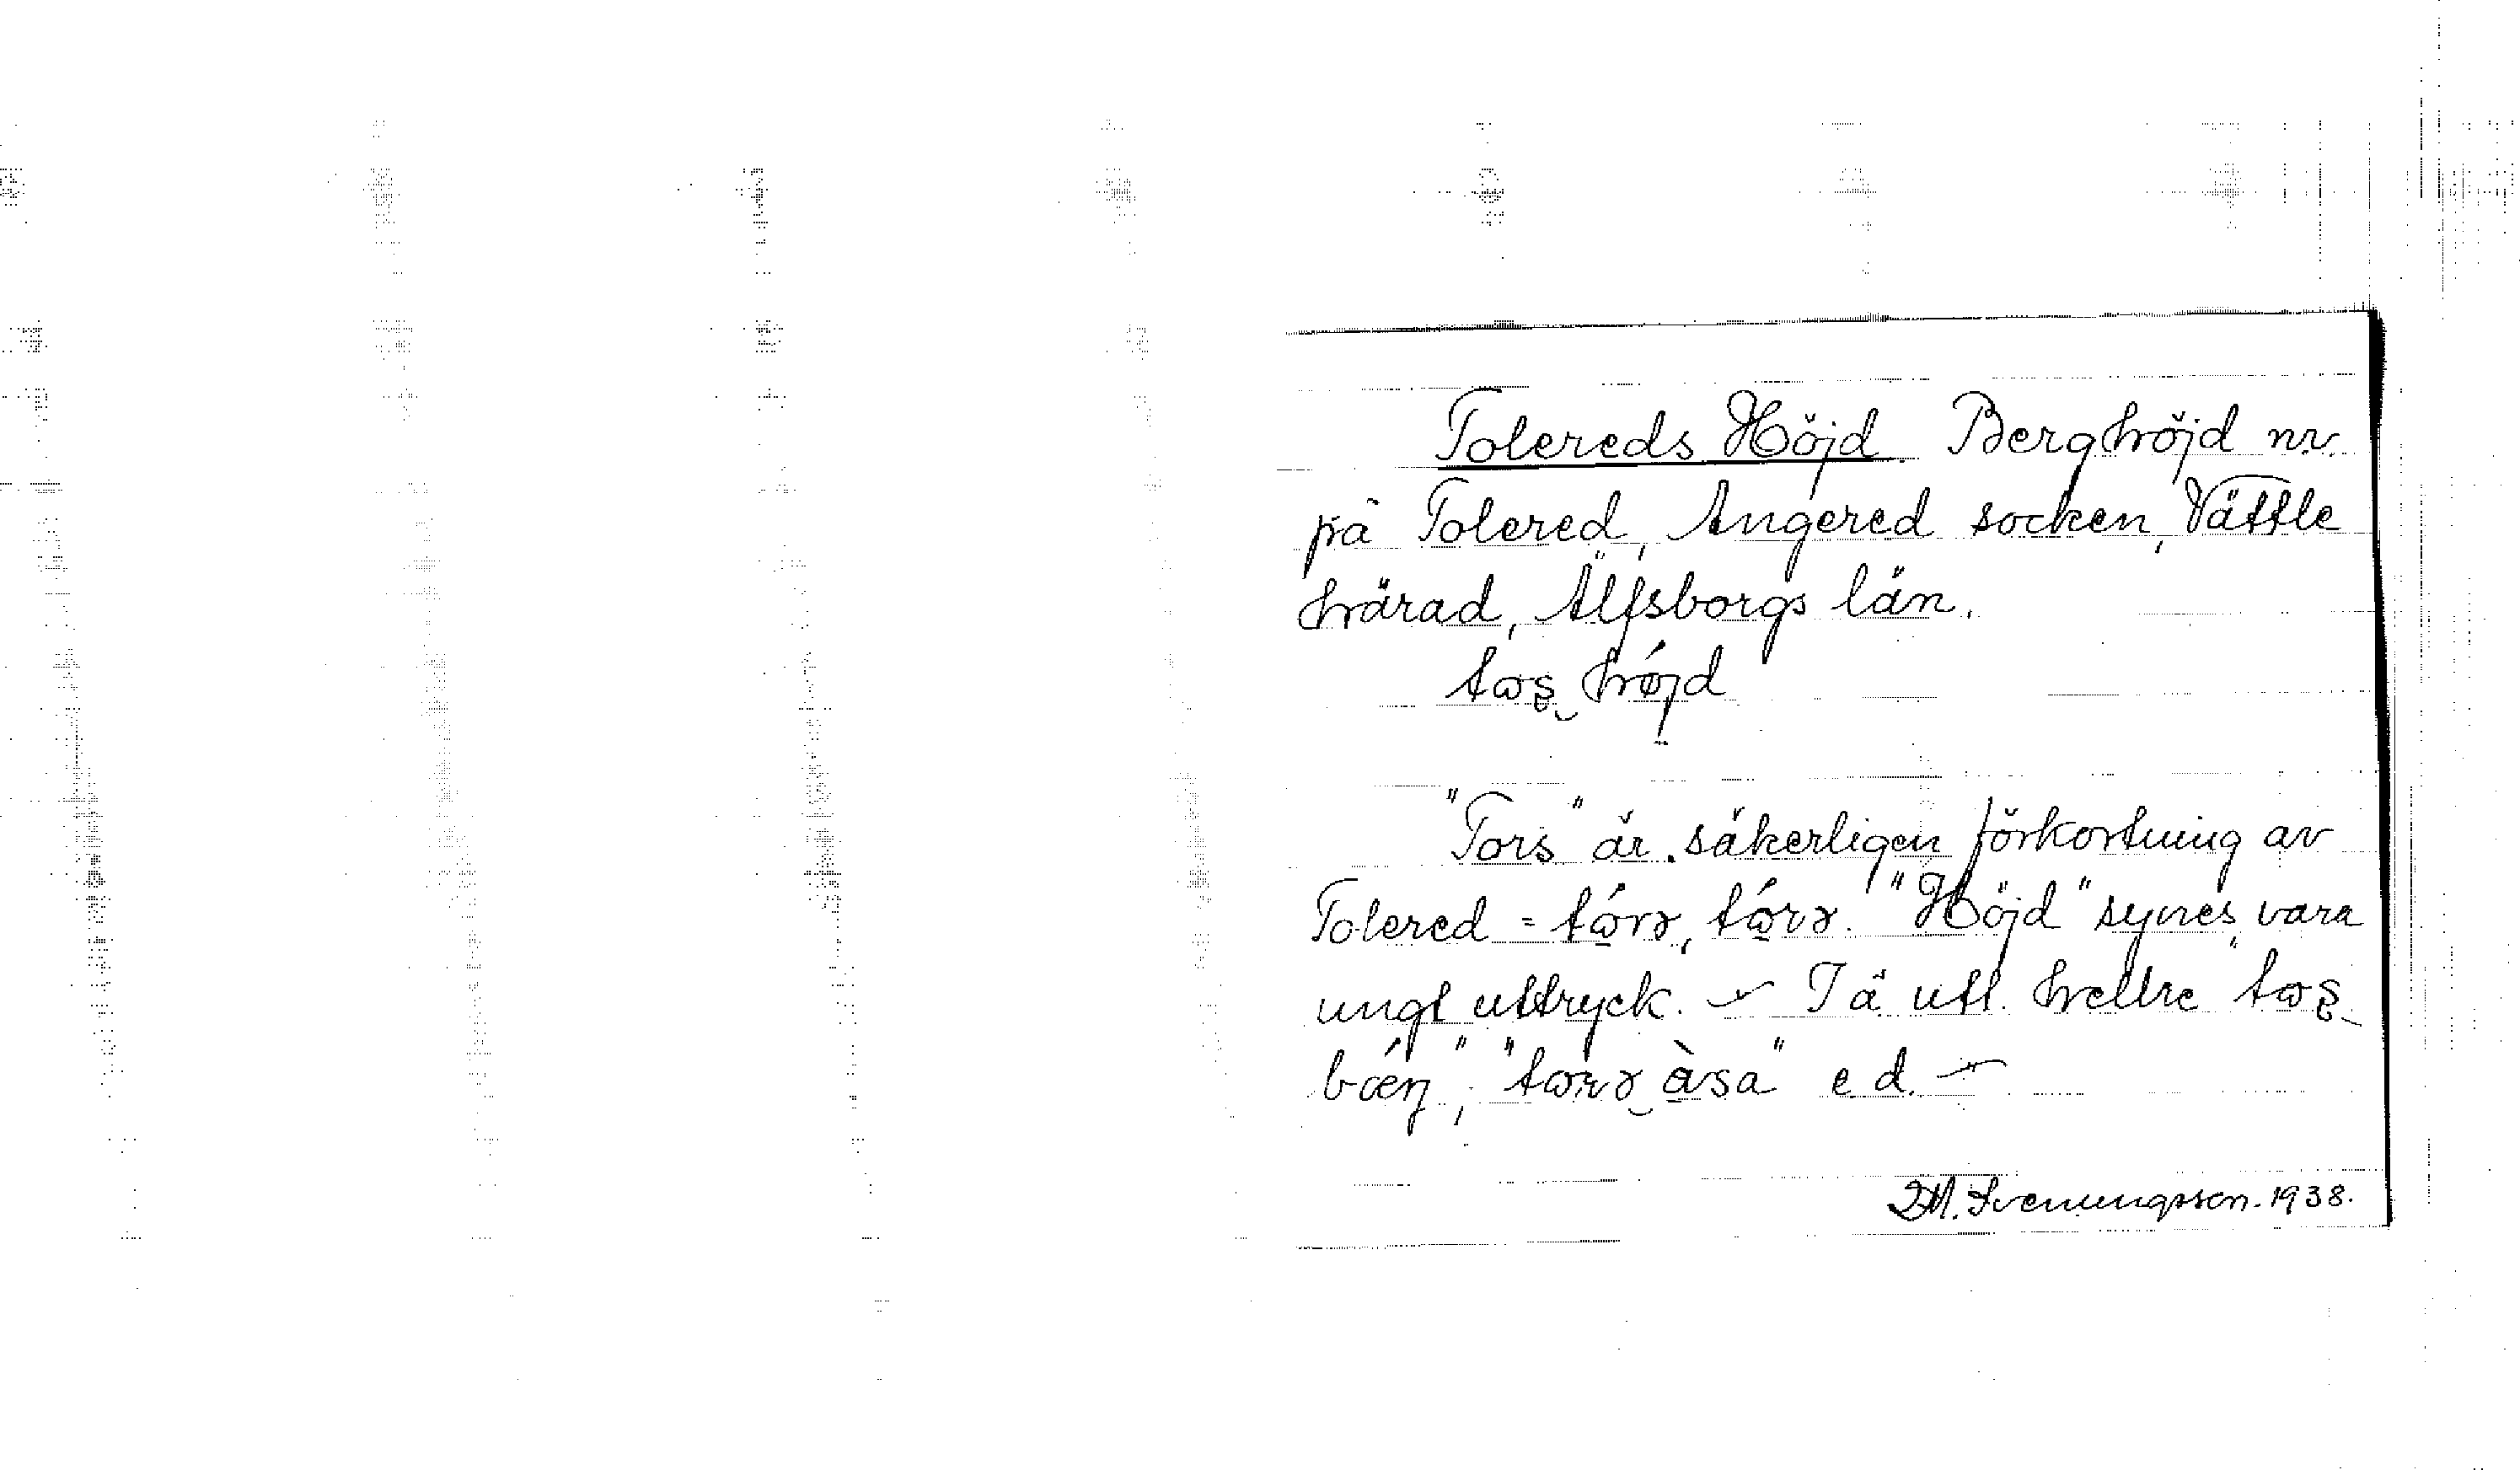 Tolereds Höjd. Berghöjd nv.
på Tolered, Angered socken, Vättle
härad, Älfsborgs län.
höjd
"Tors" är säkerligen förkortning av
Tolered = "Höjd" synes vara
ungt uttryck. – utt. hellre
åsa" e.d. –
Svenungsson. 1938.